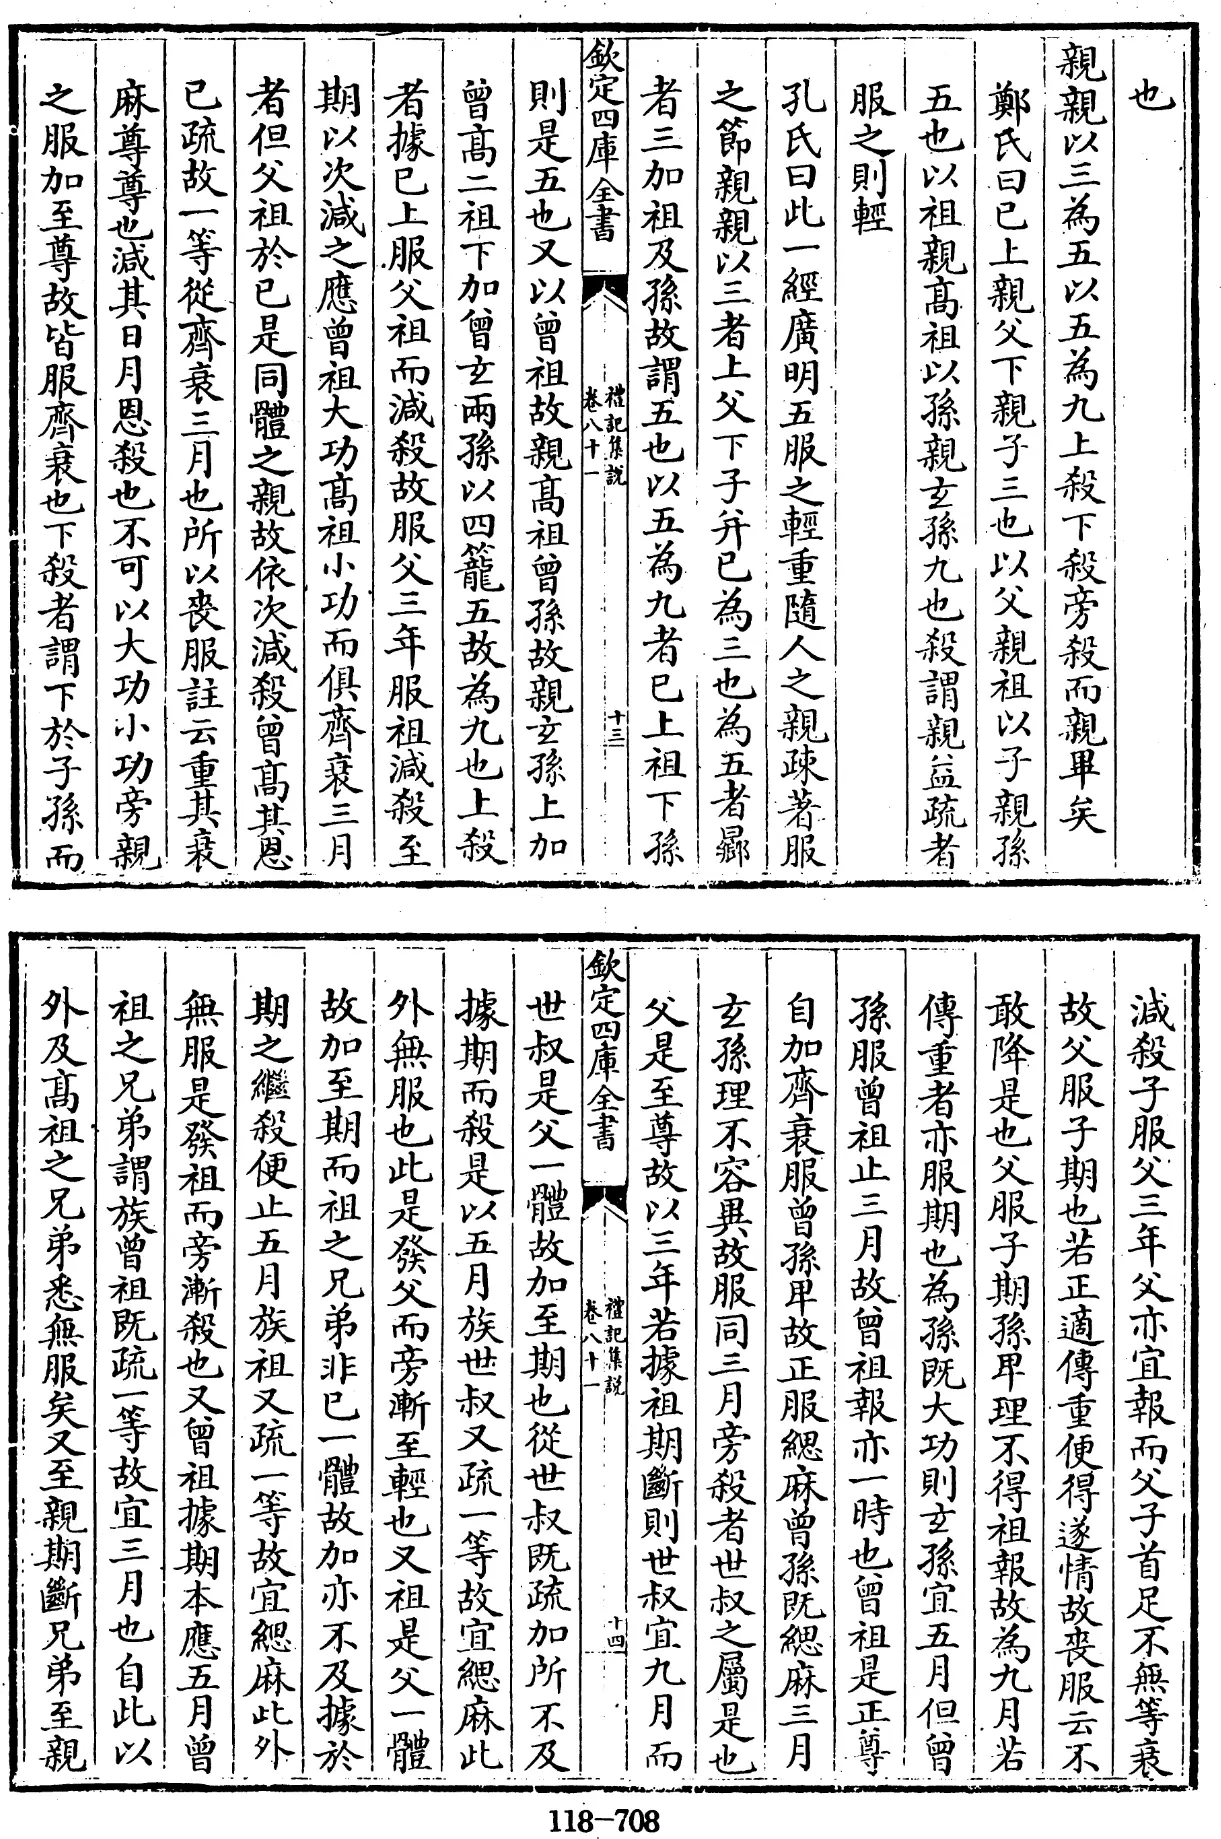 也
親親以三為五以五為九上殺下殺旁殺而親畢矣
鄭氏曰已上親父下親子三也以父親祖以子親孫
五也以祖親髙祖以孫親玄孫九也殺謂親益疏者
服之則輕
孔氏曰此一經廣明五服之輕重隨人之親疎著服
之節親親以三者上父下子并已為三也為五者曏
者三加祖及孫故謂五也以五為九者已上祖下孫
欽定四庫全書
禮記集說
卷八十一
十三
則是五也又以曾祖故親髙祖曾孫故親玄孫上加
曾髙二祖下加曾玄兩孫以四籠五故為九也上殺
者據已上服父祖而減殺故服父三年服祖減殺至
期以次減之應曾祖大功髙祖小功而俱齊衰三月
者但父祖於已是同體之親故依次減殺曾髙其恩
已疏故一等從齊衰三月也所以喪服註云重其衰
麻尊尊也減其日月恩殺也不可以大功小功旁親
之服加至尊故皆服齊衰也下殺者謂下於子孫而
減殺子服父三年父亦宜報而父子首足不無等衰
故父服子期也若正適傳重便得遂情故喪服云不
敢降是也父服子期孫卑理不得祖報故為九月若
傳重者亦服期也為孫既大功則玄孫宜五月但曾
孫服曾祖止三月故曾祖報亦一時也曾祖是正尊
自加齊衰服曾孫卑故正服緦麻曾孫既緦麻三月
玄孫理不容異故服同三月旁殺者世叔之屬是也
父是至尊故以三年若據祖期斷則世叔宜九月而
欽定四庫全書
禮記集說
卷八十一
十四
世叔是父一體故加至期也從世叔既疏加所不及
據期而殺是以五月族世叔又疏一等故宜緦麻此
外無服也此是發父而旁漸至輕也又祖是父一體
故加至期而祖之兄弟非已一體故加亦不及據於
期之繼殺便止五月族祖又疏一等故宜緦麻此外
無服是發祖而旁漸殺也又曾祖據期本應五月曾
祖之兄弟謂族曾祖既疏一等故宜三月也自此以
外及髙祖之兄弟悉無服矣又至親期斷兄弟至親
118-708